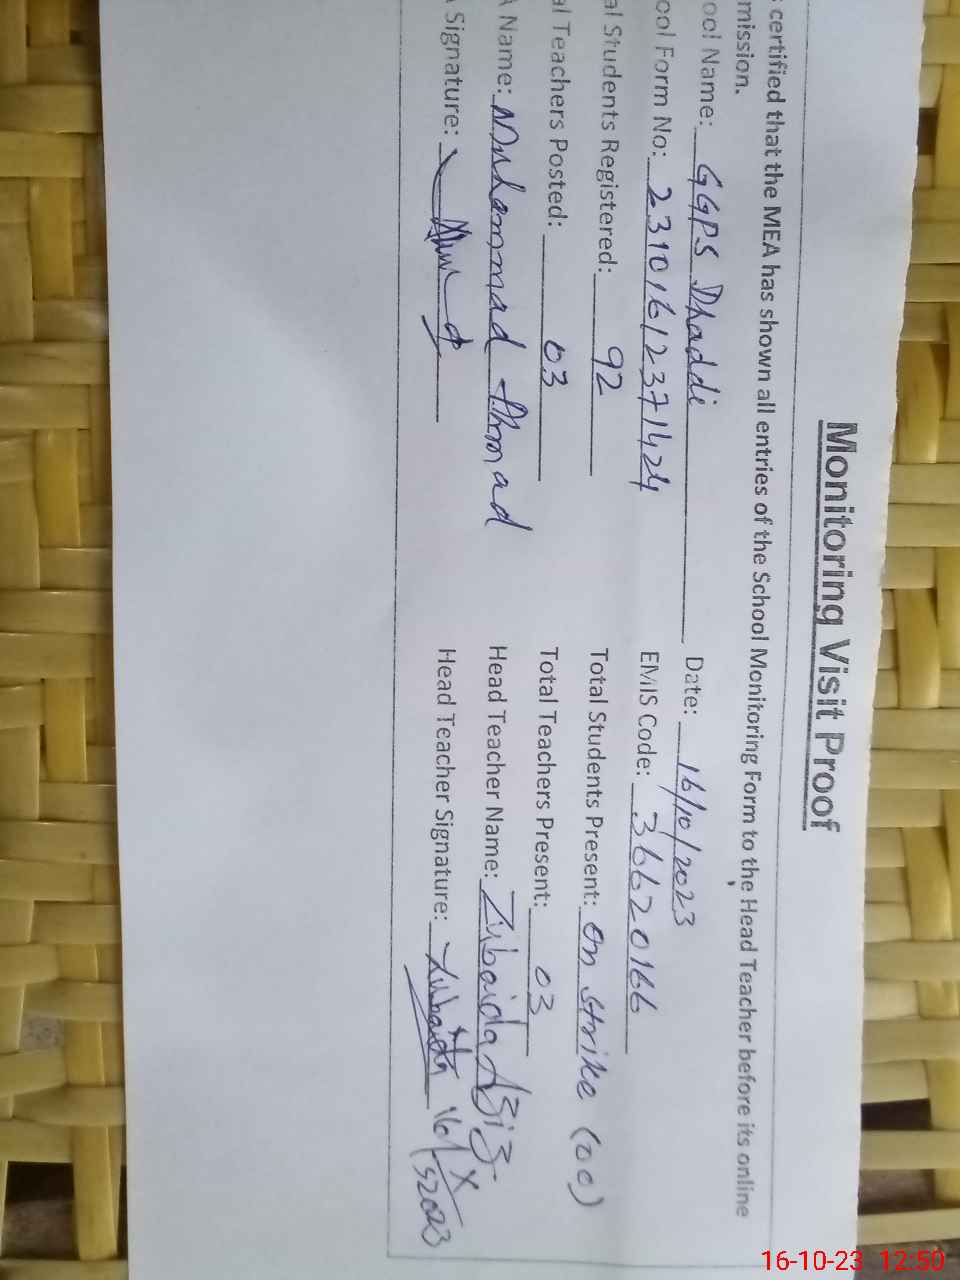 Monitoring Visit Proof
certified that the MEA has shown all entries of the School Monitoring Form to the Head Teacher before its online
mission.
ool Name: GGPS Dhaddi Date: 16/10/2023
ool Form No: 23101612371424 EMIS Code: 36620166
al Students Registered: 92 Total Students Present: on strike (00)
al Teachers Posted: 03 Total Teachers Present: 03
A Name: Muhammad Ahmad Head Teacher Name: Zubaida Aziz
A Signature: Head Teacher Signature: Zubaida 16/X/2023
16-10-23 12:50